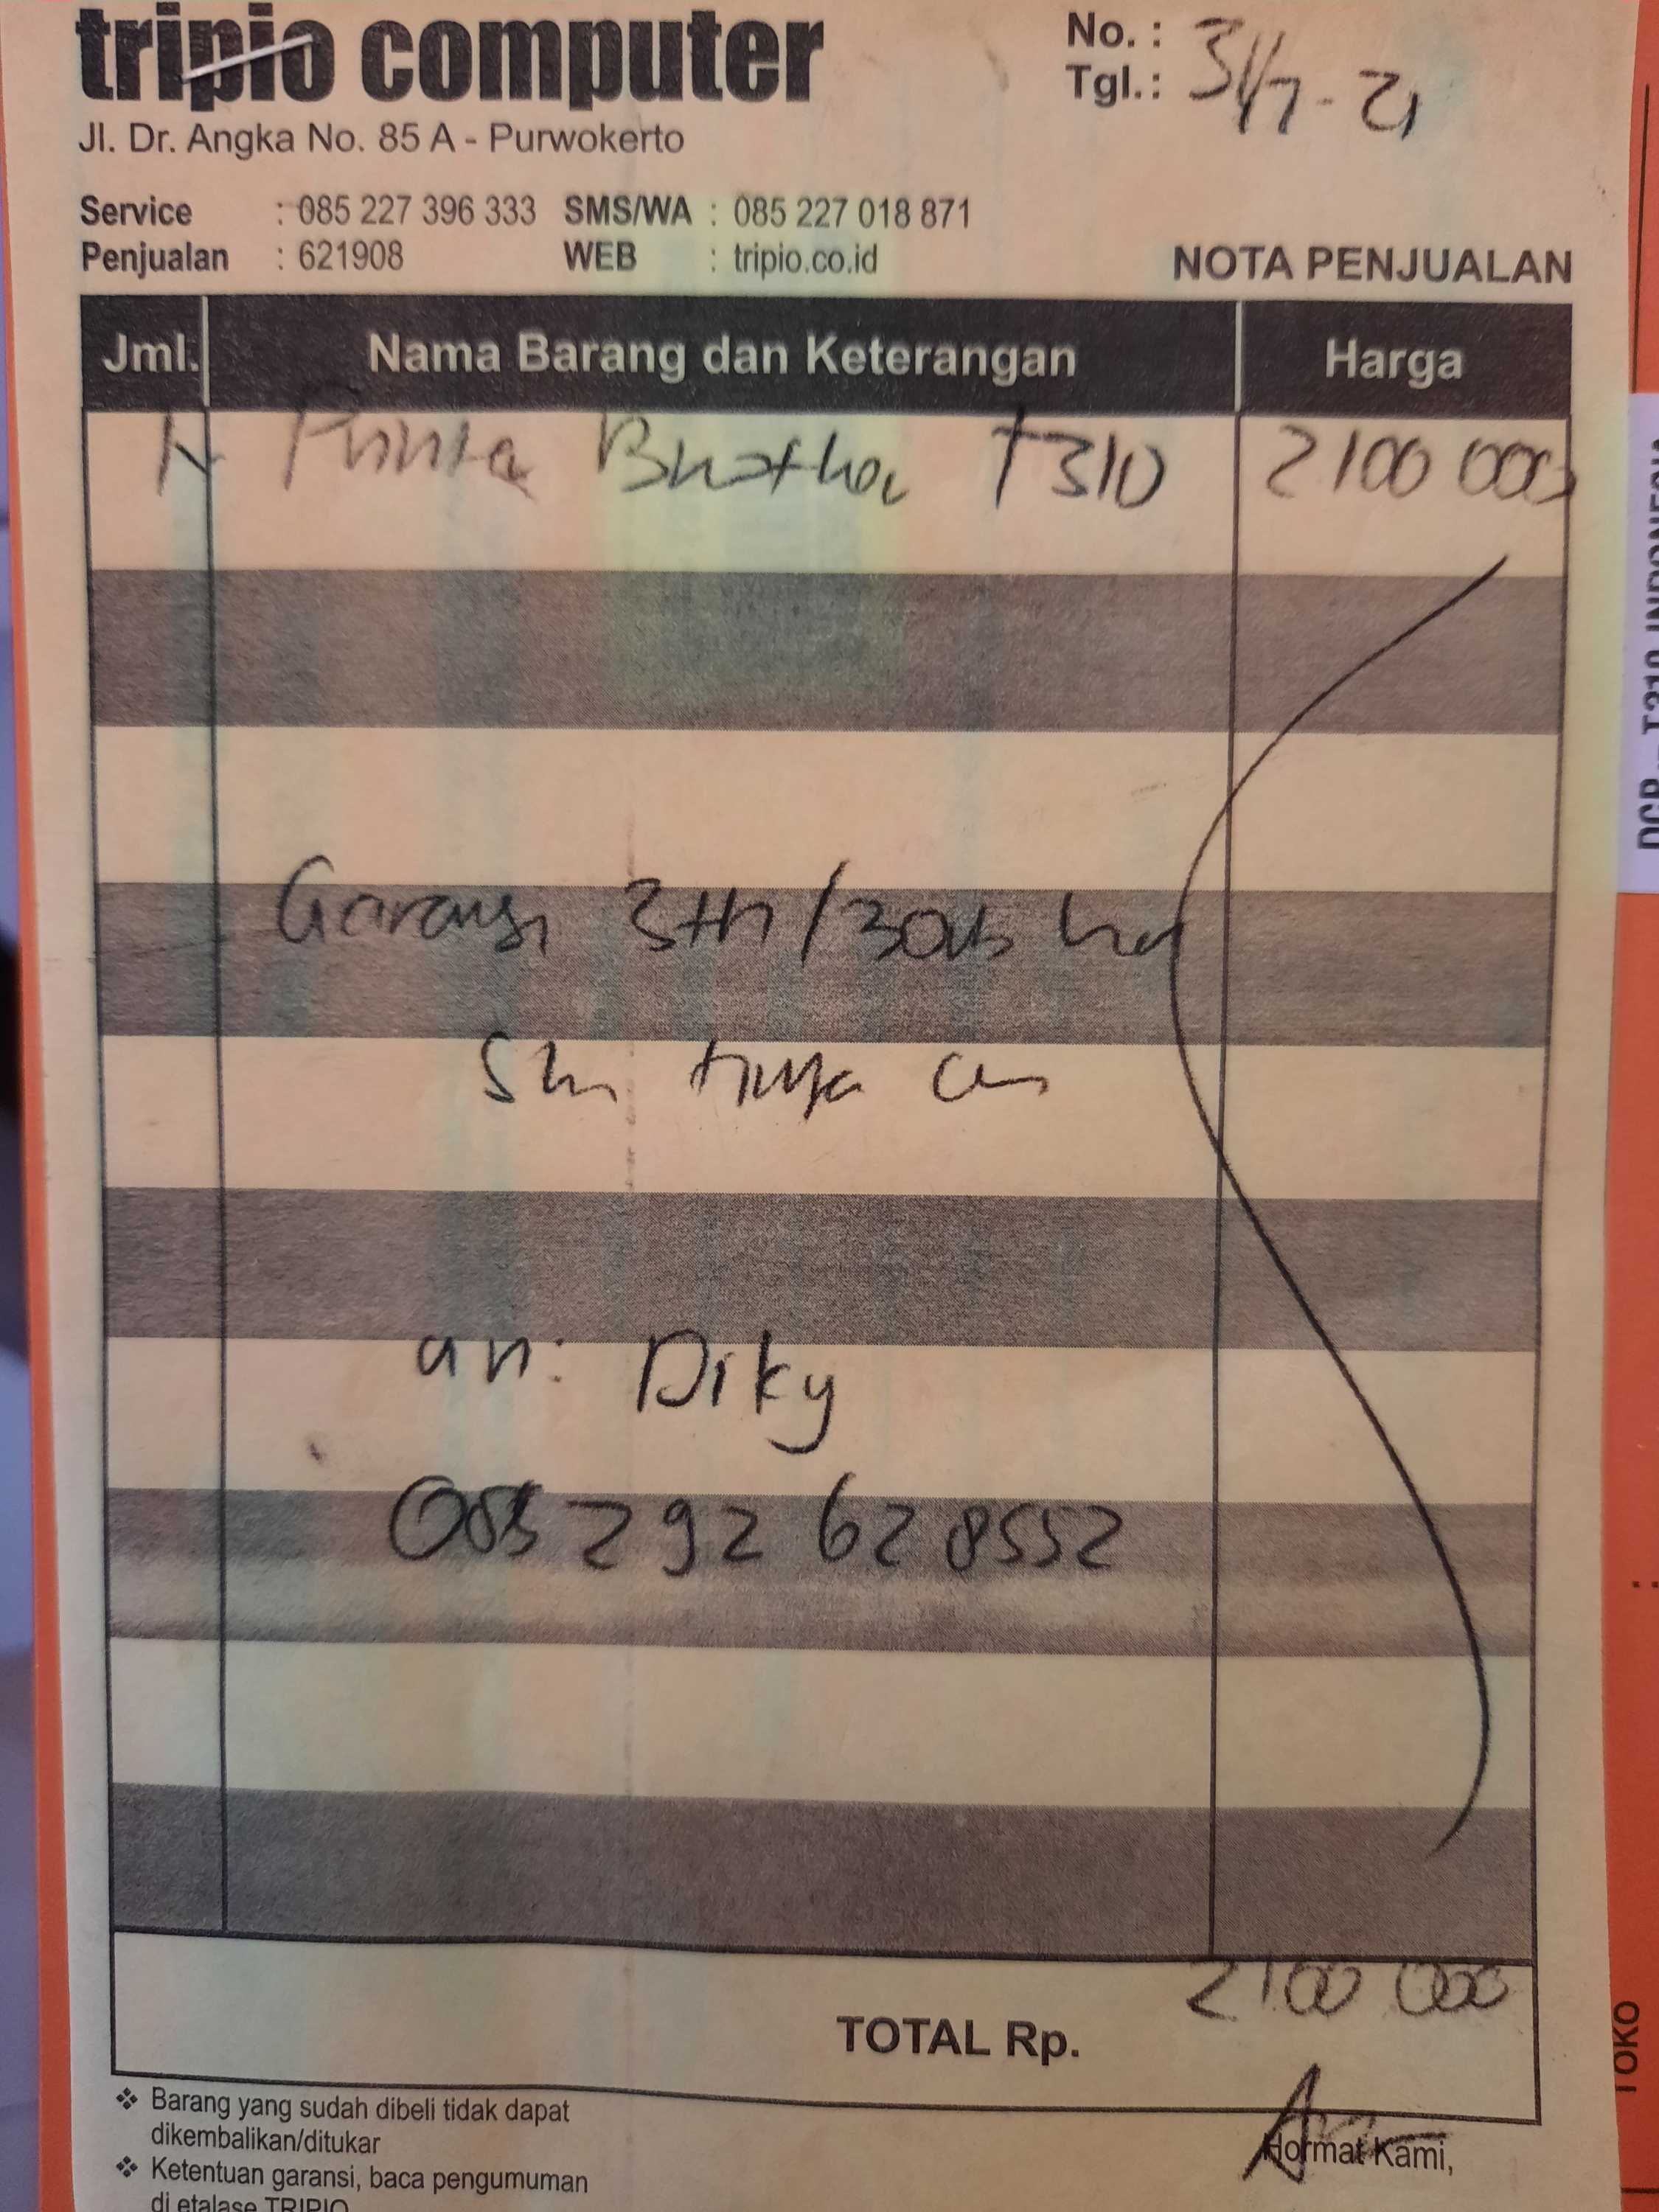 tripio computer
Jl. Dr. Angka No. 85 A - Purwokerto
No. :
Tgl. : 31/7-21
Service : 085 227 396 333 SMS/WA : 085 227 018 871
Penjualan : 621908 WEB : tripio.co.id
NOTA PENJUALAN
Jml. Nama Barang dan Keterangan Harga
1 Printer Brother T310 2100 000
Garansi 3th/30
an: Diky
085 292 628552
TOTAL Rp. 2100 000
❖ Barang yang sudah dibeli tidak dapat
dikembalikan/ditukar
❖ Ketentuan garansi, baca pengumuman
di etalase TRIPIO
Hormat Kami,
DCP - T310 INDONESIA
TOKO